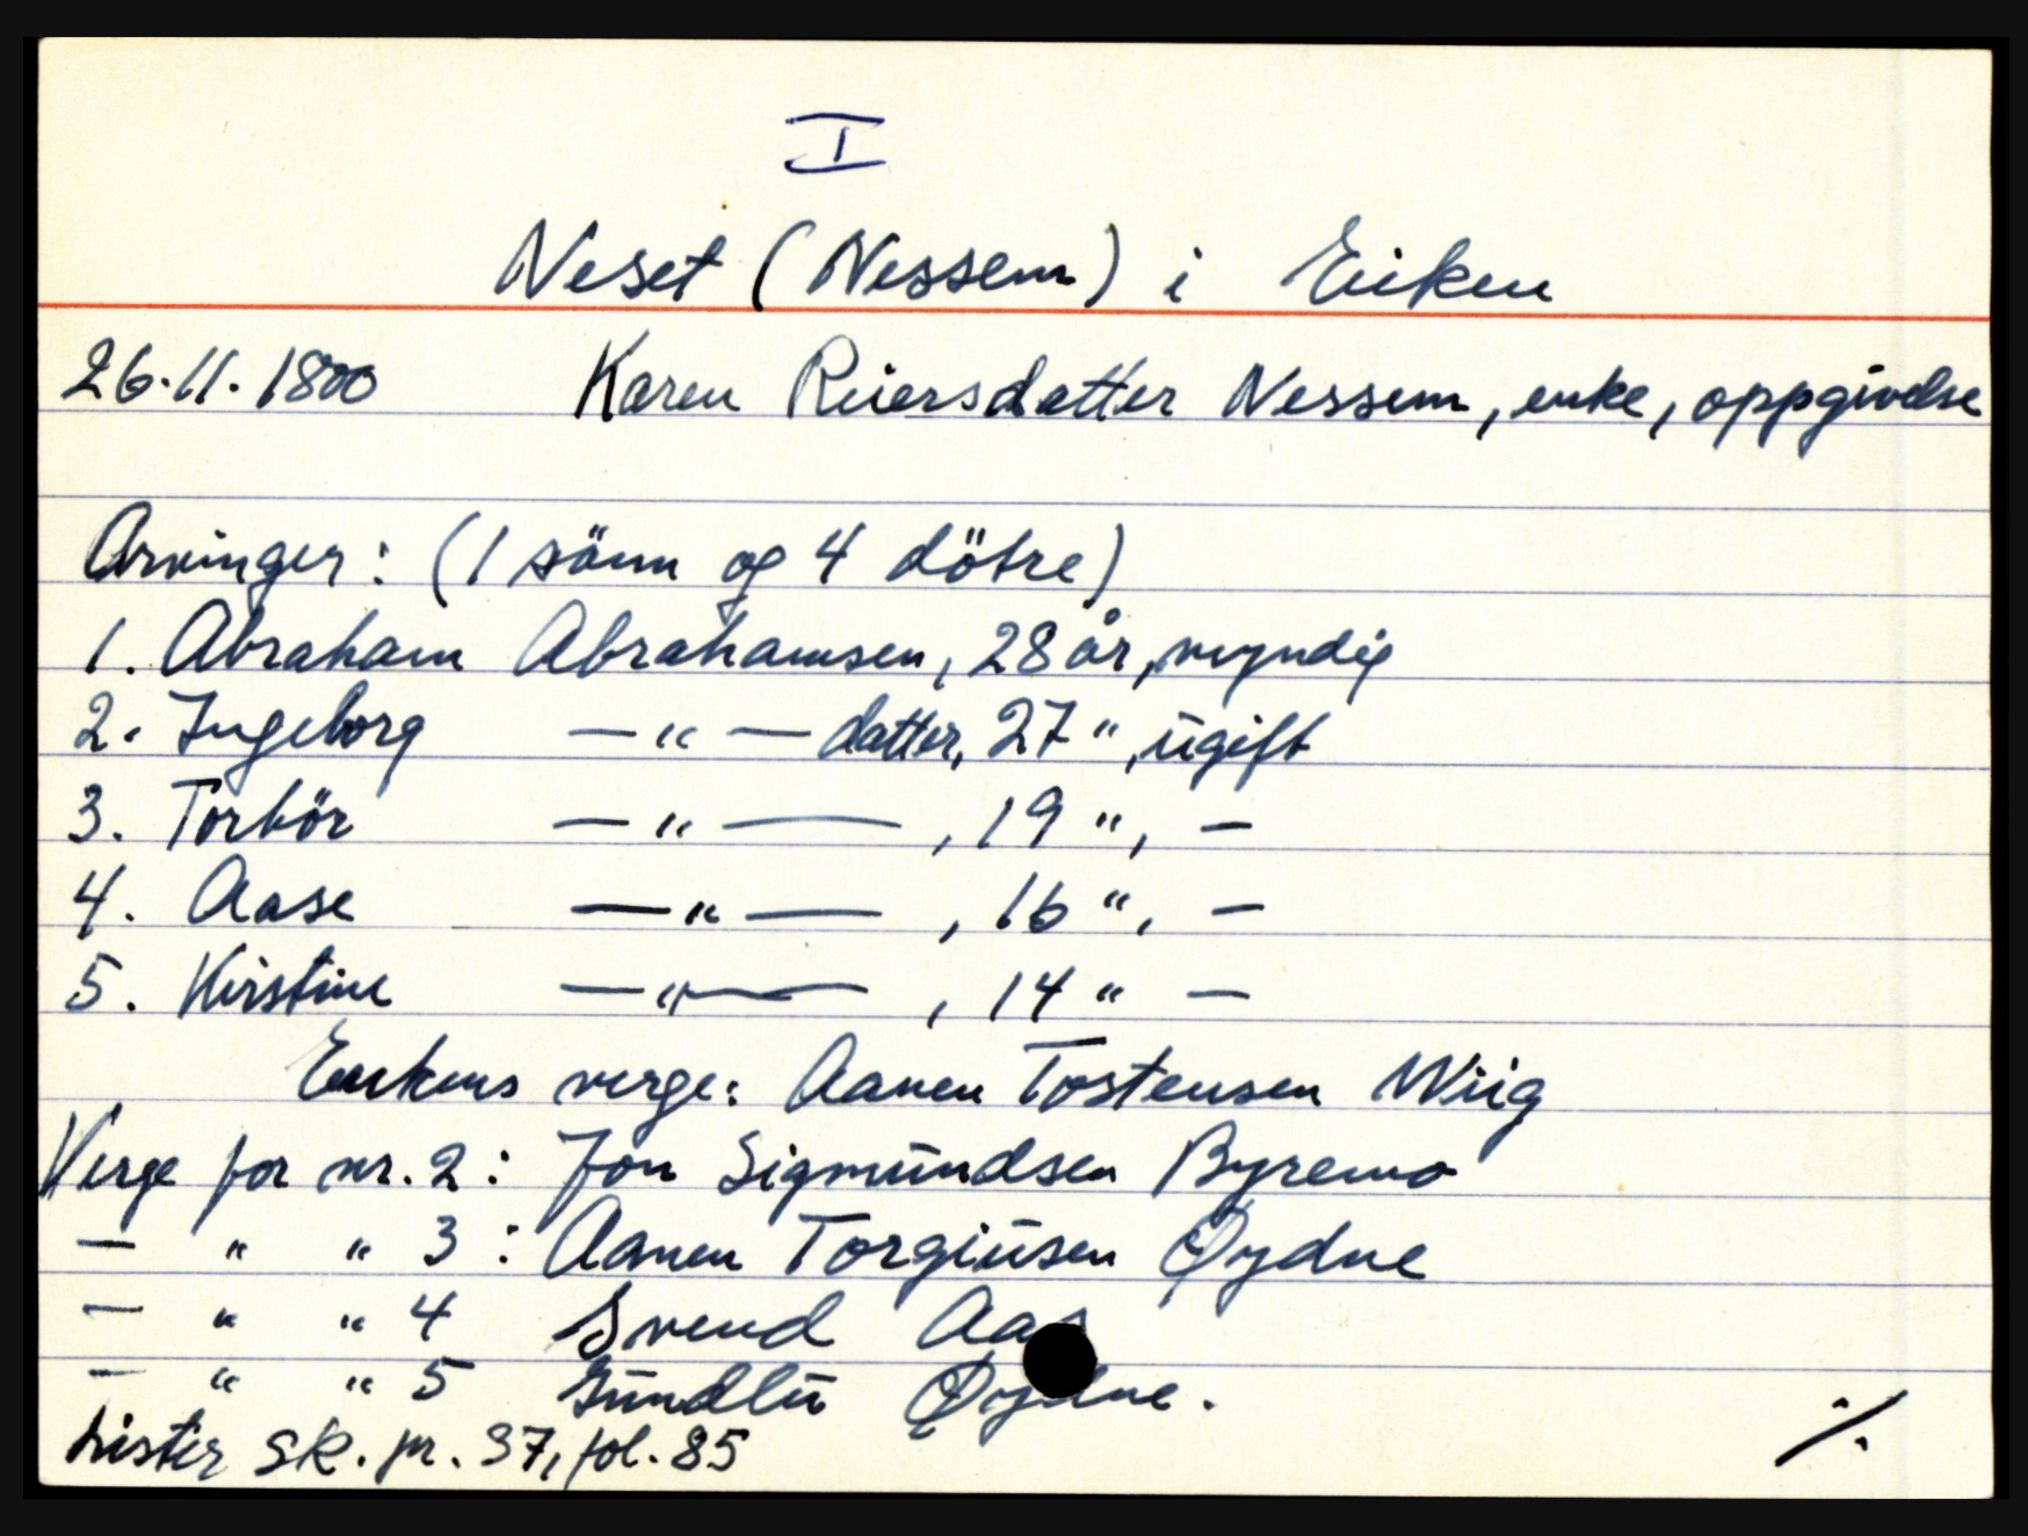 I
Neset (Nessem) i Eiken
26.11.1800 Karen Reiersdatter Nessem, enke, oppgivelse
Arvinger: (1 sönn og 4 dötre)
1. Abraham Abrahamsen, 28 år, myndig
2. Ingeborg —"— datter, 27 ", ugift
3. Torbör —"— , 19 ", —
4. Aase —"— , 16 ", —
5. Kirstine —"— , 14 " —
Enkens verge: Aanen Tostensen Wiig
Verge for nr. 2: Jon Sigmundsen Byremo
— " " 3: Aanen Torgiusen Øydne
— " " 4 Svend Aas
— " " 5 Gundlu Øydne.
Lister sk. pr. 37, fol. 85
./.